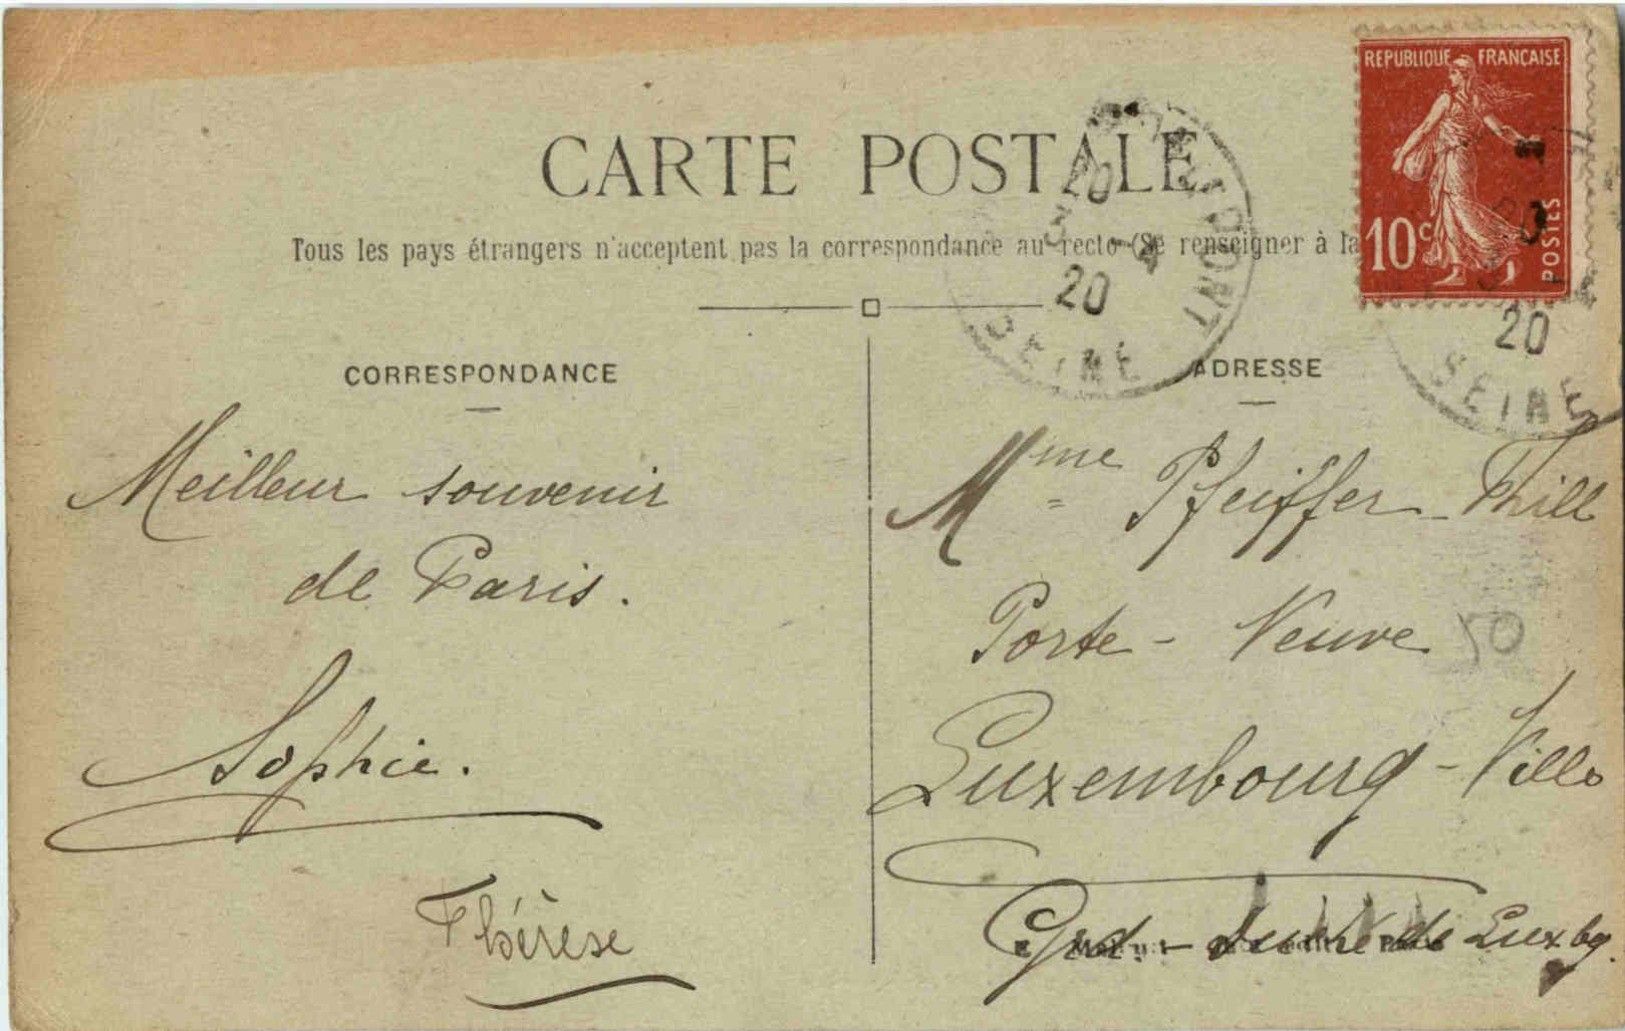 REPUBLIQUE FRANÇAISE
10c
POSTES
CARTE POSTALE
Tous les pays étrangers n'acceptent pas la correspondance au recto (Se renseigner à la
20
4
20
SEINE
20
SEINE
CORRESPONDANCE
Meilleur souvenir
de Paris.
Sophie.
Thérèse
ADRESSE
Mme Pfeiffer-Thill
Porte-Neuve
50
Luxembourg-Ville
Grd-duché de Luxbg.